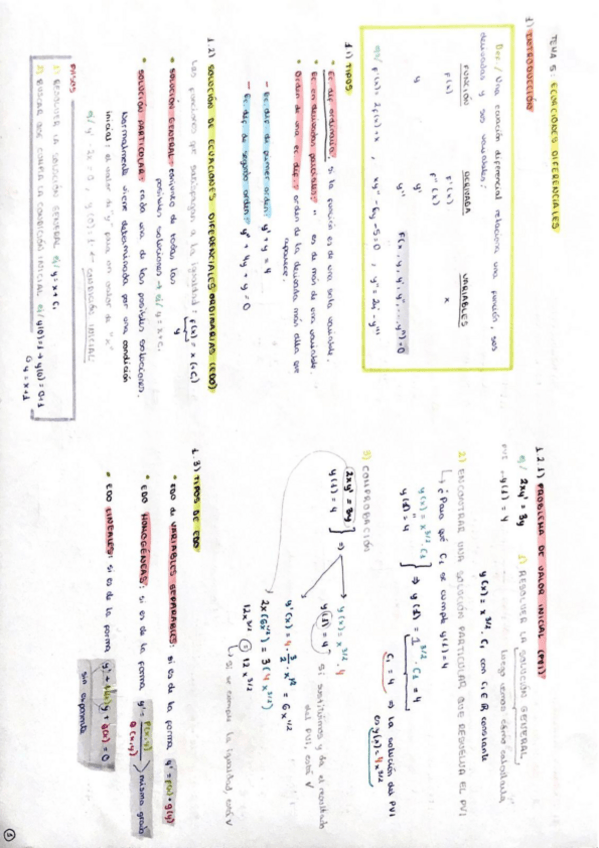 TEMA 5: ECUACIONES DIFERENCIALES
1) INTRODUCCIÓN
Def / Una ecuación diferencial relaciona una función, sus
derivadas y sus variables:
FUNCIÓN DERIVADA VARIABLES
f(x) f'(x) x
f''(x)
y y'
y'' F(x, y, y', y'' ... yⁿ) = 0
ej/ f'(x) = 2f(x) + x , xy'' - 6y - 5 = 0 , y'' = 2y' - y'''
1.1) TIPOS
• Ec dif ordinaria: si la función es de una sola variable.
• Ec en derivadas parciales: " es de más de una variable.
• Orden de una ec dif.: orden de la derivada más alta que
aparece.
- Ec dif de primer orden: y' + y = 4
- Ec dif de segundo orden: y'' + 4y' + y = 0
1.2) SOLUCIÓN DE ECUACIONES DIFERENCIALES ORDINARIAS (EDO)
Las funciones que satisfagan a la igualdad: f(x) = x (+C)
y
• SOLUCIÓN GENERAL: conjunto de todas las
posibles soluciones → ej/ y = x + C.
• SOLUCIÓN PARTICULAR: cada una de las posibles soluciones.
Normalmente viene determinada por una condición
inicial: el valor de y para un valor de "x"
CONDICIÓN INICIAL
PASOS
1) RESOLVER LA SOLUCIÓN GENERAL ej/ y = x + C₁
2) BUSCAR QUE CUMPLA LA CONDICIÓN INICIAL ej/ y(0) = 1 → y(0) = 0 + 1
y = x + 1
1.2.1) PROBLEMA DE VALOR INICIAL (PVI)
ej/ 2xy' = 3y 1) RESOLVER LA SOLUCIÓN GENERAL,
PVI y(1) = 4 luego vemos cómo calcularla
y(x) = x^3/2 · C₁ con C₁ ∈ R constante
2) ENCONTRAR UNA SOLUCIÓN PARTICULAR QUE RESUELVA EL PVI
↳ ¿Para qué C₁ se cumple y(1) = 4
y(x) = x^3/2 · C₁
y(1) = 4 } ⇒ y(1) = 1^3/2 · C₁ = 4
C₁ = 4 ⇒ la solución del PVI
es y(x) = 4x^3/2
3) COMPROBACIÓN
2xy' = 3y
y(1) = 4 } ⇒ y(x) = x^3/2 · 4
y(1) = 4 Si sustituimos y da el resultado
del PVI, está V
y'(x) = 4 · 3/2 · x^1/2 = 6x^1/2
2x(6x^1/2) = 3(4x^3/2)
12x^3/2 = 12x^3/2
↳ si se cumple la igualdad, está V
1.3) TIPOS DE EDO
• EDO de VARIABLES SEPARABLES: si es de la forma y' = p(x) · g(y)
• EDO HOMOGÉNEAS: si es de la forma y' = P(x,y) / Q(x,y) mismo grado
• EDO LINEALES: si es de la forma y' + p(x)y + q(x) = 0
sin exponente
5